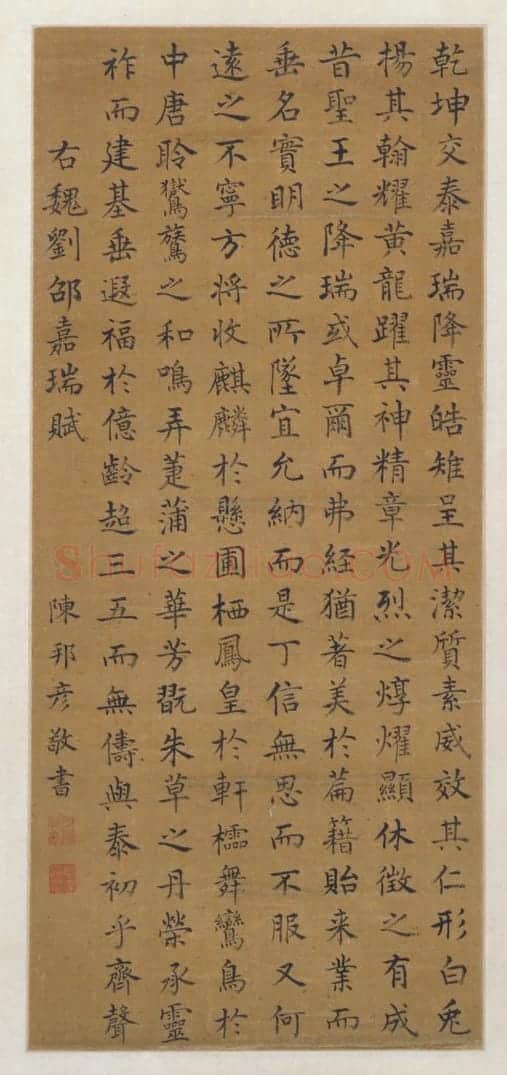 乾坤交泰嘉瑞降靈皓雉呈其潔質素威效其仁形白兎
揚其翰耀黃龍躍其神精章光烈之焞燿顯休徴之有成
昔聖王之降瑞或卓爾而弗經猶著美於篇籍貽来業而
垂名實明德之所墜宜允納而是丁信無思而不服又何
遠之不寧方將收麒麟於懸圃栖鳳皇於軒櫺舞鸞鳥於
中唐聆鸑鷟之和鳴弄萐蒲之華芳翫朱草之丹榮承靈
祚而建基垂遐福於億齡超三五而無儔與泰初乎齊聲
右魏劉邵嘉瑞賦
陳邦彦敬書
Shufazhioo.COM